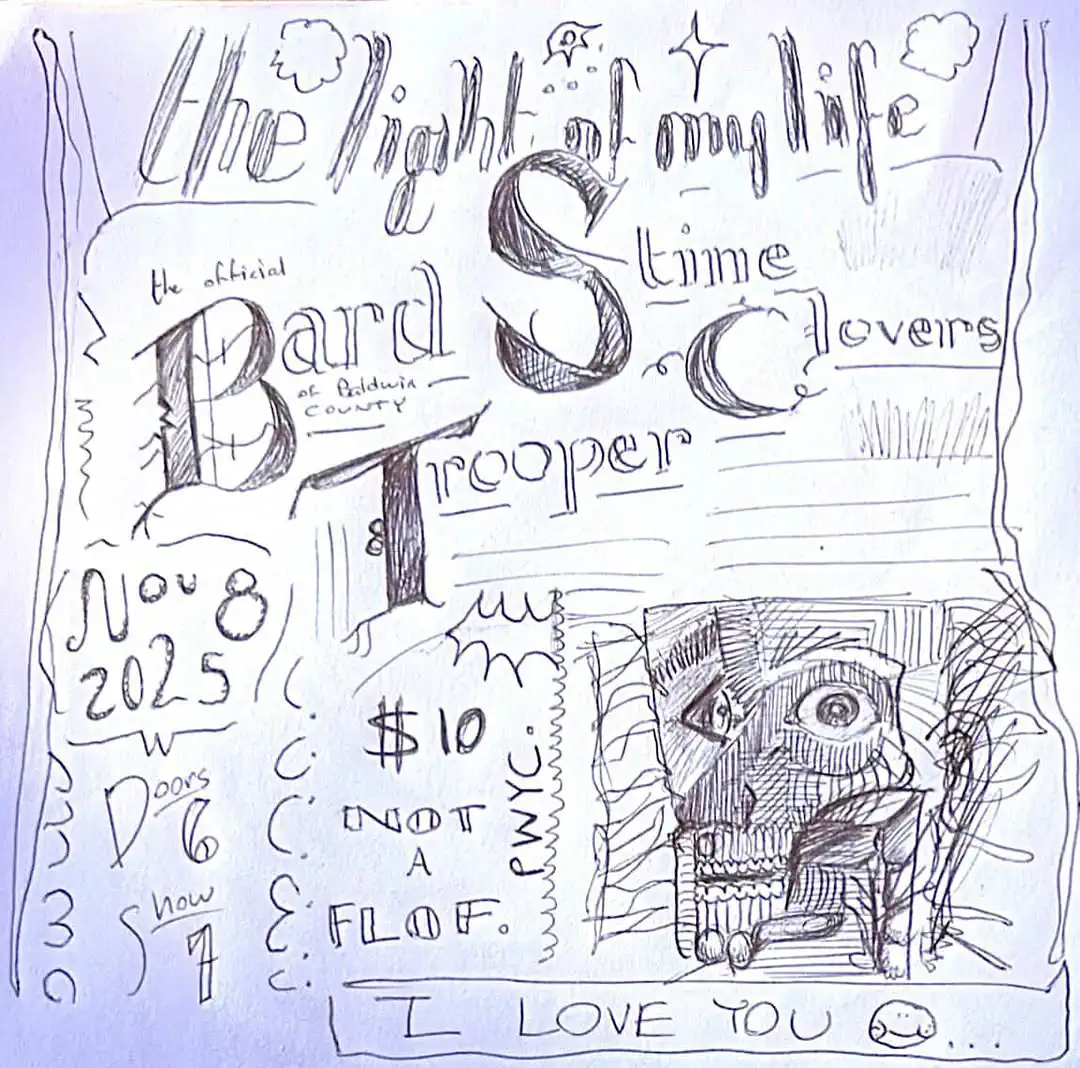 the light of my life
the official
Bard
of Baldwin
COUNTY
Stime
Clovers
&
Trooper
Nov 8
2025
Doors
6
Show
7
$10
NOT
A
FLOF.
PWYC.
I LOVE YOU ...